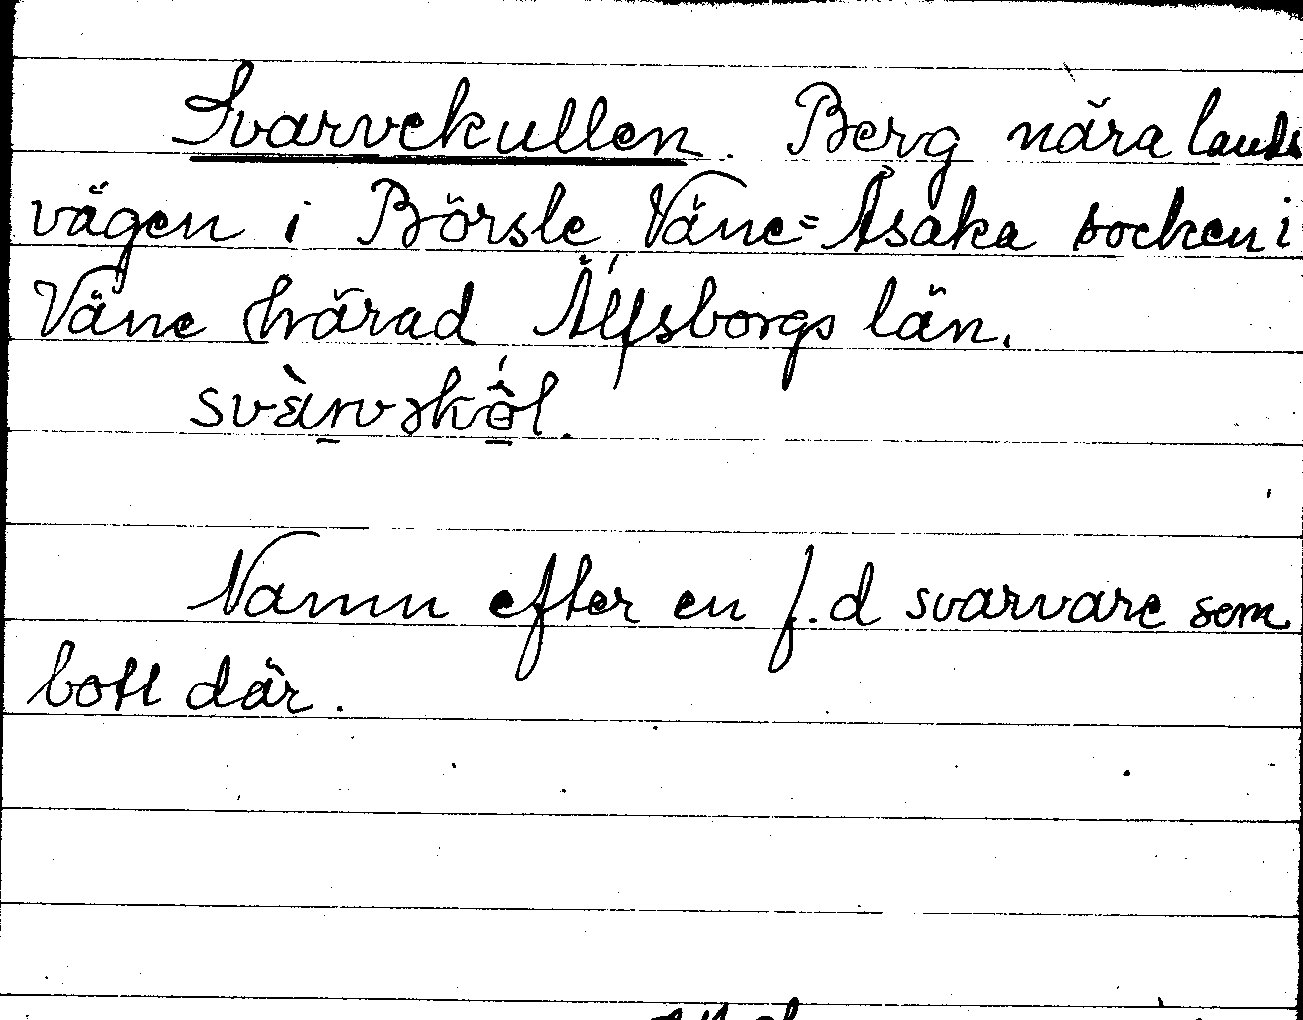 Svarvekullen. Berg nära lands
vägen i Börsle Väne=Åsaka socken i
Väne härad Älfsborgs län.
Namn efter en f.d svarvare som
bott där.